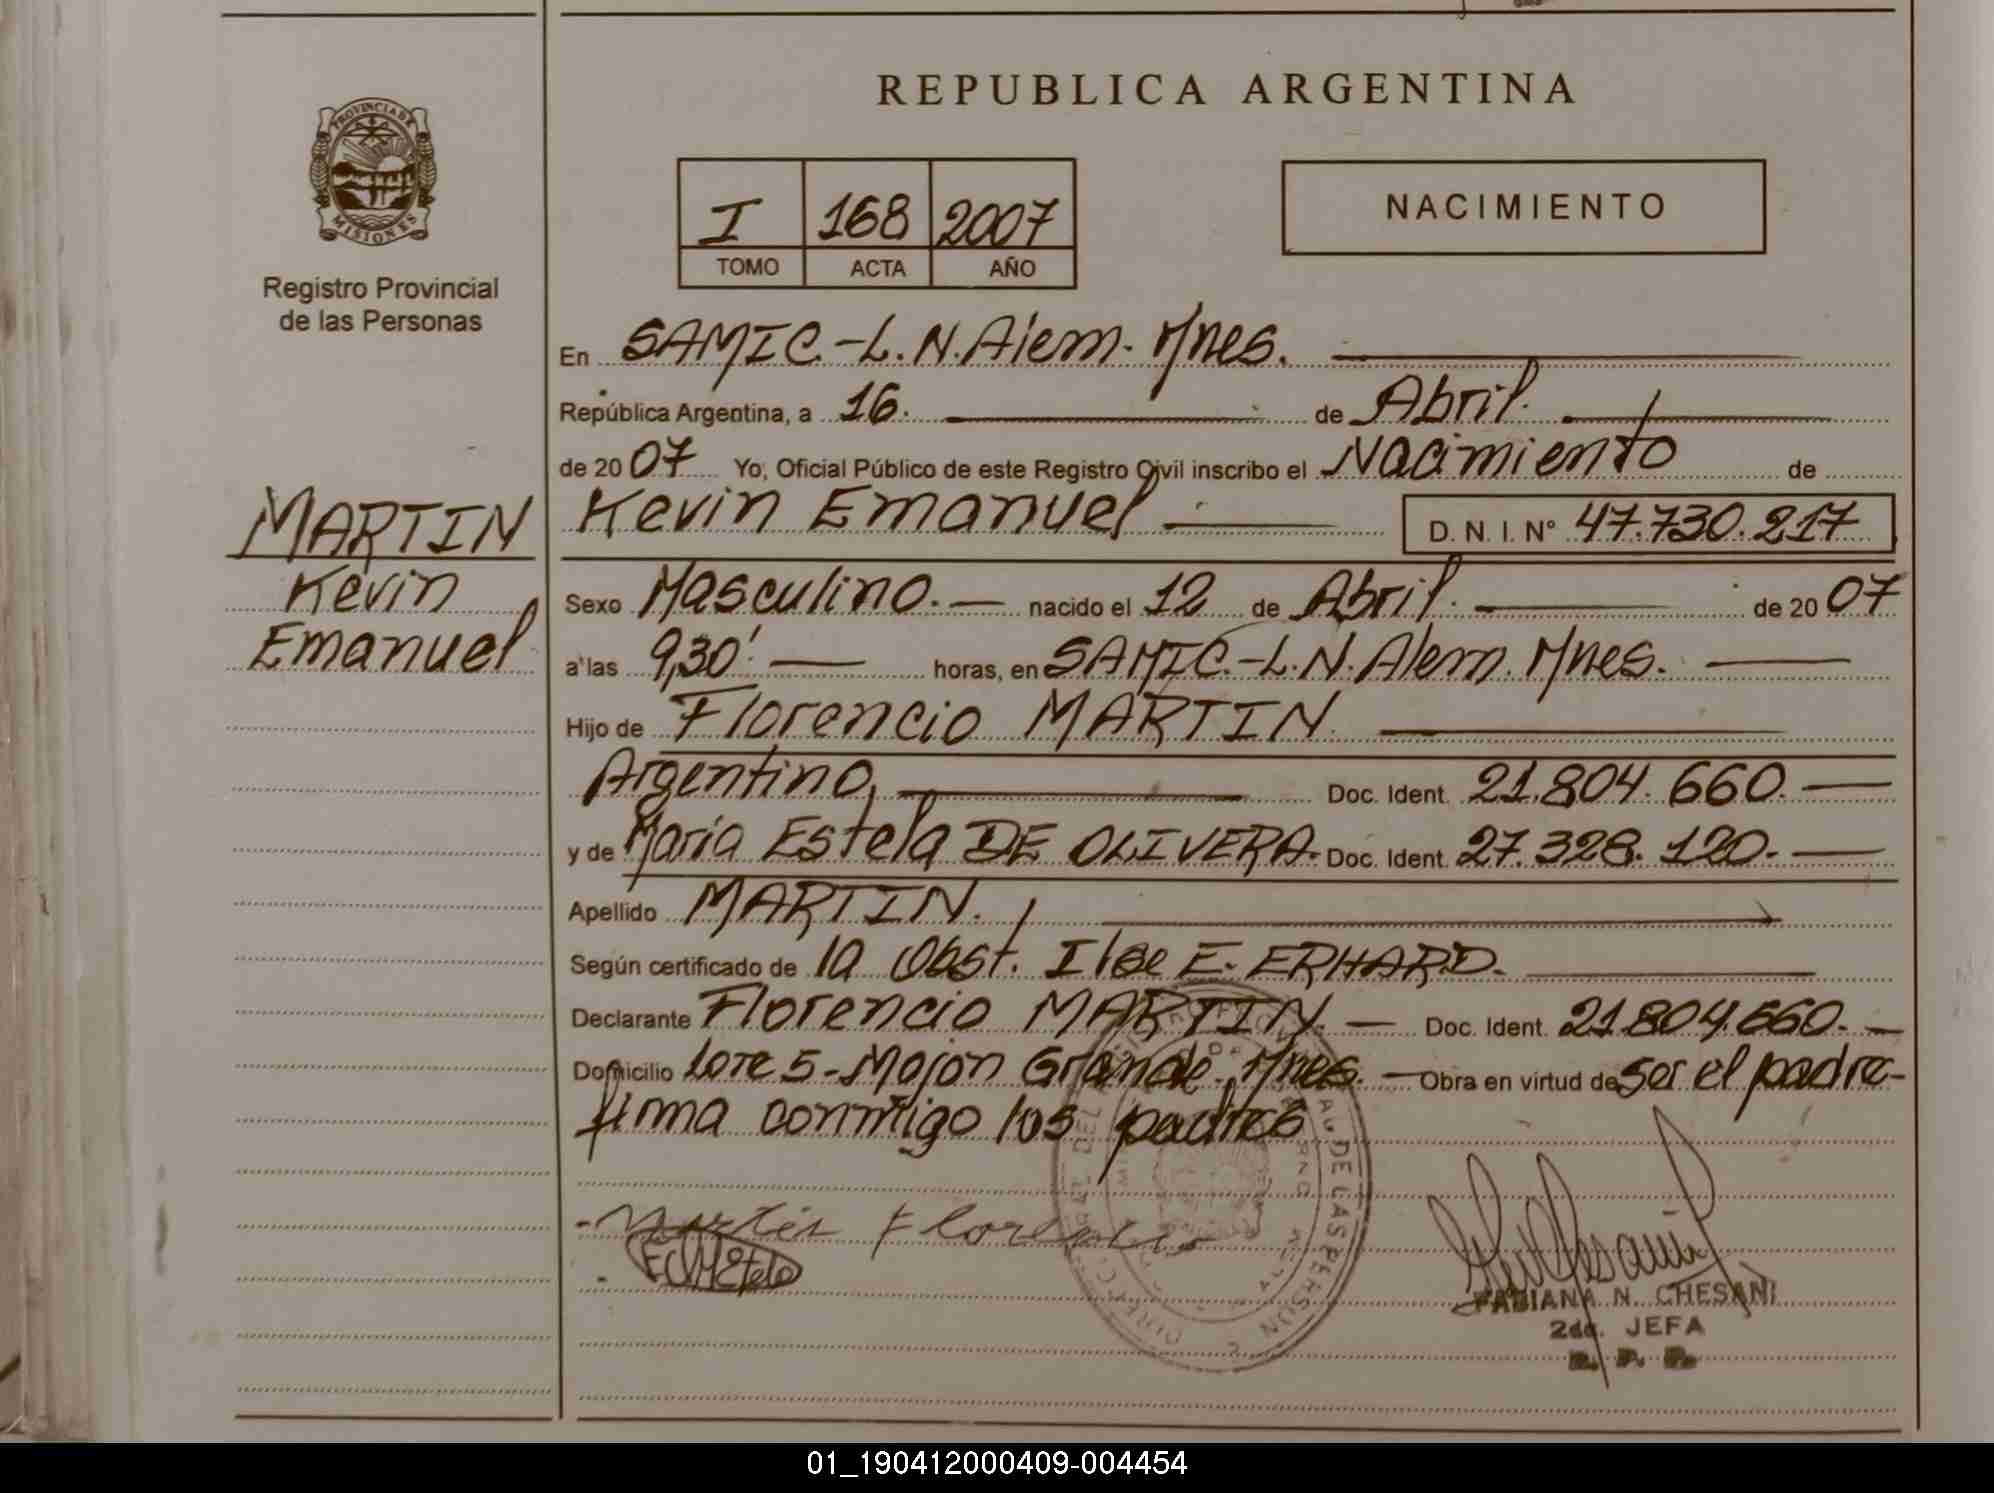 REPUBLICA ARGENTINA
PROVINCIA DE MISIONES
Registro Provincial
de las Personas
I 168 2007
TOMO ACTA AÑO
NACIMIENTO
En SAMIC.-L.N.Alem. Mnes.
República Argentina, a 16. de Abril.
de 20 07 Yo, Oficial Público de este Registro Civil inscribo el Nacimiento de
MARTIN
Kevin
Emanuel
Kevin Emanuel D. N. I. Nº 47.730.217
Sexo Masculino. nacido el 12 de Abril. de 20 07
a las 9,30'. horas, en SAMIC.-L.N. Alem. Mnes.
Hijo de Florencio MARTIN.
Argentino, Doc. Ident. 21.804.660.
y de María Estela DE OLIVERA. Doc. Ident. 27.328.120.
Apellido MARTIN.
Según certificado de la Obst. Ilse E. ERHARD.
Declarante Florencio MARTIN. Doc. Ident. 21.804.660.
Domicilio Lote 5-Mojón Grande. Mnes. Obra en virtud de ser el padre-
firma conmigo los padres
Martin Florencio
FABIANA N. CHESANI
2da. JEFA
R. P. P.
01_190412000409-004454